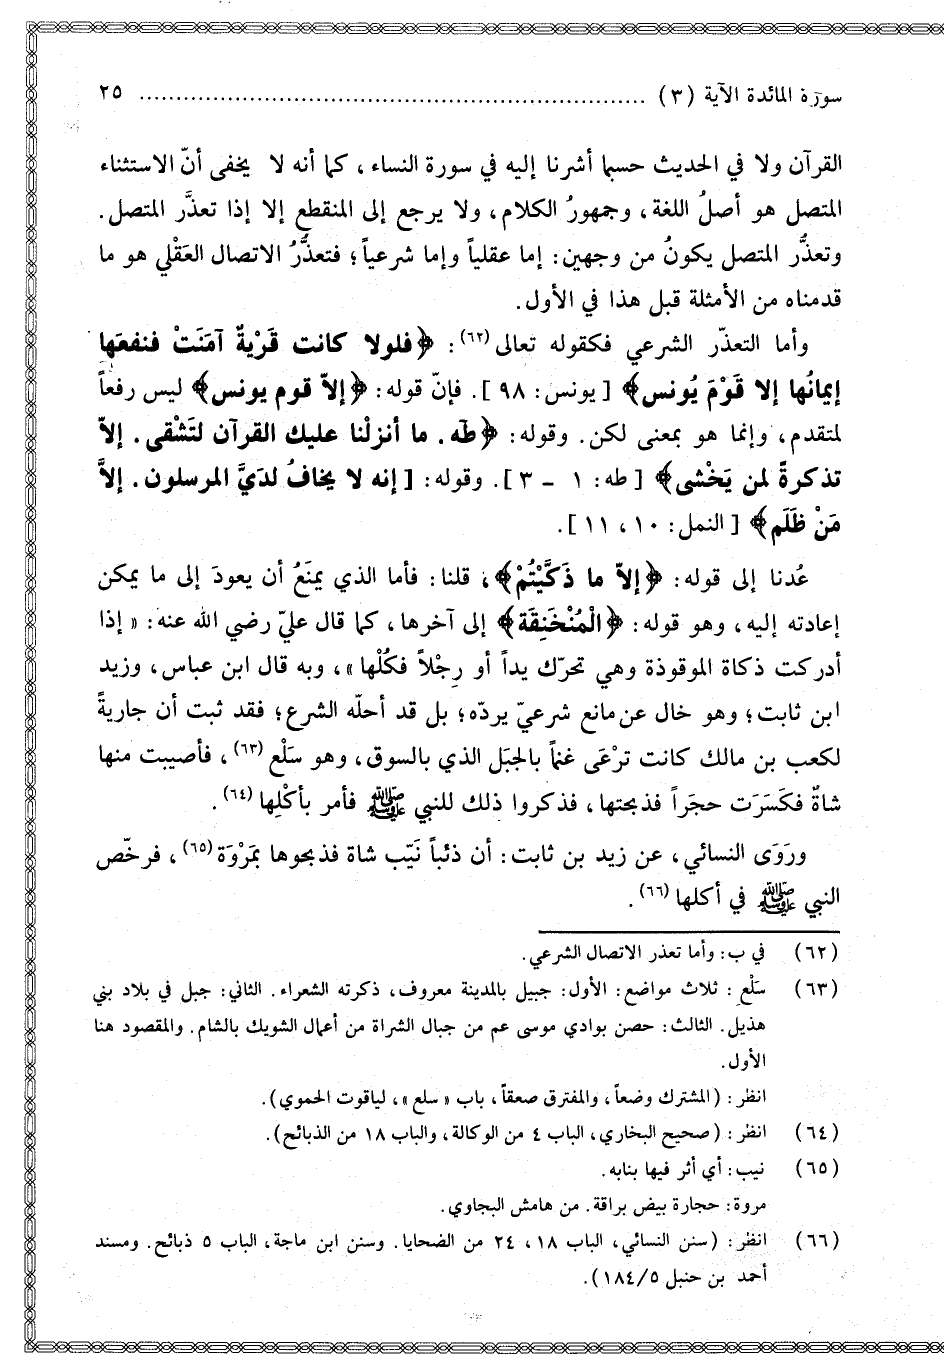 سورة المائدة الآية (٣) ........................................................................ ٢٥
القرآن ولا في الحديث حسبما أشرنا إليه في سورة النساء، كما أنه لا يخفى أنّ الاستثناء
المتصل هو أصلُ اللغة، وجمهورُ الكلام، ولا يرجع إلى المنقطع إلا إذا تعذَّر المتصل.
وتعذُّر المتصل يكونُ من وجهين: إما عقلياً وإما شرعياً؛ فتعذُّرُ الاتصال العَقْلي هو ما
قدمناه من الأمثلة قبل هذا في الأول.
وأما التعذّر الشرعي فكقوله تعالى (٦٢): ﴿فلولا كانت قَرْيةٌ آمَنَتْ فنفعَها
إيمانُها إلا قَوْمَ يُونس﴾ [يونس: ٩٨]. فإنّ قوله: ﴿إلاّ قوم يونس﴾ ليس رفعاً
لمتقدم، وإنما هو بمعنى لكن. وقوله: ﴿طٓه. ما أنزلْنا عليك القرآن لتَشْقى. إلاّ
تذكرةً لمن يَخْشى﴾ [طه: ١ - ٣]. وقوله: [إنه لا يخافُ لديَّ المرسلون. إلاَّ
مَنْ ظَلَم﴾ [النمل: ١٠، ١١].
عُدنا إلى قوله: ﴿إلاّ ما ذَكَّيْتُمْ﴾، قلنا: فأما الذي يمنَعُ أن يعودَ إلى ما يمكن
إعادته إليه، وهو قوله: ﴿الْمُنْخَنِقَة﴾ إلى آخرها، كما قال عليّ رضي الله عنه: «إذا
أدركت ذكاة الموقوذة وهي تحرّك يداً أو رِجْلاً فكُلْها»، وبه قال ابن عباس، وزيد
ابن ثابت؛ وهو خال عن مانع شرعيّ يردّه؛ بل قد أحلّه الشرع؛ فقد ثبت أن جاريةً
لكعب بن مالك كانت ترْعَى غنماً بالجبَل الذي بالسوق، وهو سَلْع (٦٣)، فأصيبت منها
شاةٌ فكَسَرَت حجَراً فذبحتها، فذكروا ذلك للنبي ﷺ فأمر بأكْلِها (٦٤).
ورَوَى النسائي، عن زيد بن ثابت: أن ذئباً نَيّب شاة فذبحوها بمَرْوَة (٦٥)، فرخّص
النبي ﷺ في أكلها (٦٦).
(٦٢) في ب: وأما تعذر الاتصال الشرعي.
(٦٣) سَلْع: ثلاث مواضع: الأول: جبيل بالمدينة معروف، ذكرته الشعراء. الثاني: جبل في بلاد بني
هذيل. الثالث: حصن بوادي موسى عم من جبال الشراة من أعمال الشوبك بالشام. والمقصود هنا
الأول.
انظر: (المشترك وضعاً، والمفترق صعقاً، باب «سلع»، لياقوت الحموي).
(٦٤) انظر: (صحيح البخاري، الباب ٤ من الوكالة، والباب ١٨ من الذبائح).
(٦٥) نيب: أي أثر فيها بنابه.
مروة: حجارة بيض براقة. من هامش البجاوي.
(٦٦) انظر: (سنن النسائي، الباب ١٨، ٢٤ من الضحايا. وسنن ابن ماجة، الباب ٥ ذبائح. ومسند
أحمد بن حنبل ١٨٤/٥).